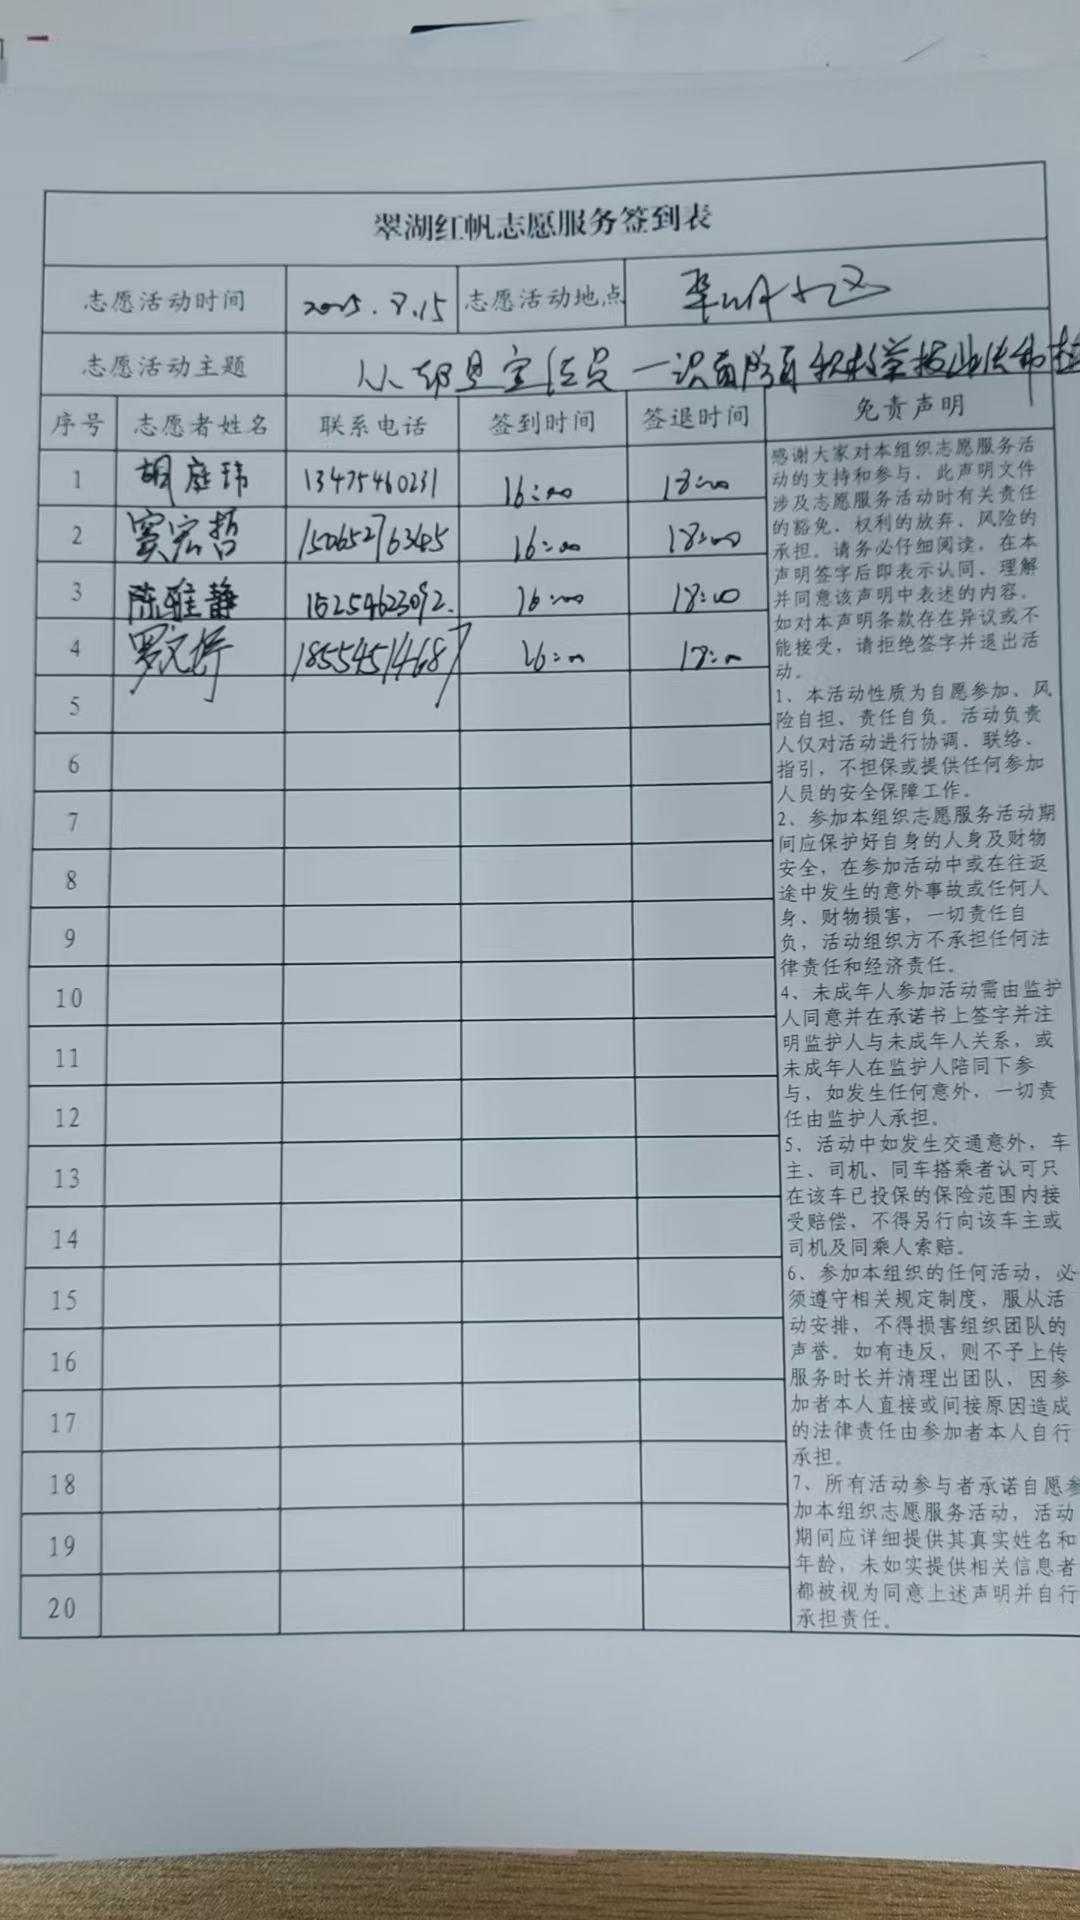 翠湖红帆志愿服务签到表
志愿活动时间 2025.8.15 志愿活动地点 翠湖小区
志愿活动主题
序号 志愿者姓名 联系电话 签到时间 签退时间 免责声明
1 胡庭玮 13475460231 16:00 18:00
2 窦宏哲 15065276345 16:00 18:00
3 陈雅静 15254623092. 16:00 18:00
4 罗文婷 18554514687 16:00 18:00
5
6
7
8
9
10
11
12
13
14
15
16
17
18
19
20
感谢大家对本组织志愿服务活
动的支持和参与，此声明文件
涉及志愿服务活动时有关责任
的豁免、权利的放弃、风险的
承担。请务必仔细阅读，在本
声明签字后即表示认同、理解
并同意该声明中表述的内容。
如对本声明条款存在异议或不
能接受，请拒绝签字并退出活
动。
1、本活动性质为自愿参加、风
险自担、责任自负。活动负责
人仅对活动进行协调、联络、
指引，不担保或提供任何参加
人员的安全保障工作。
2、参加本组织志愿服务活动期
间应保护好自身的人身及财物
安全，在参加活动中或在往返
途中发生的意外事故或任何人
身、财物损害，一切责任自
负，活动组织方不承担任何法
律责任和经济责任。
4、未成年人参加活动需由监护
人同意并在承诺书上签字并注
明监护人与未成年人关系，或
未成年人在监护人陪同下参
与，如发生任何意外，一切责
任由监护人承担。
5、活动中如发生交通意外，车
主、司机、同车搭乘者认可只
在该车已投保的保险范围内接
受赔偿，不得另行向该车主或
司机及同乘人索赔。
6、参加本组织的任何活动，必
须遵守相关规定制度，服从活
动安排，不得损害组织团队的
声誉。如有违反，则不予上传
服务时长并清理出团队，因参
加者本人直接或间接原因造成
的法律责任由参加者本人自行
承担。
7、所有活动参与者承诺自愿参
加本组织志愿服务活动，活动
期间应详细提供其真实姓名和
年龄，未如实提供相关信息者
都被视为同意上述声明并自行
承担责任。